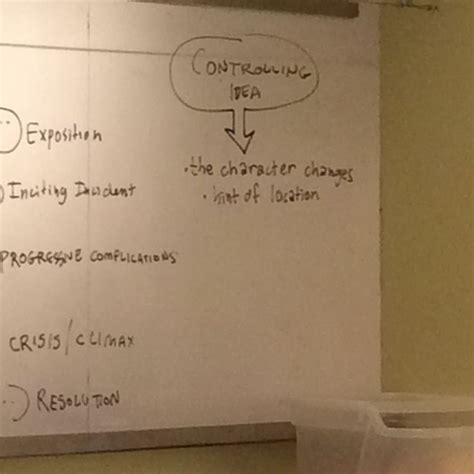 CONTROLLING
IDEA
• the character changes
• hint of location
Exposition
Inciting Incident
PROGRESSIVE COMPLICATIONS
CRISIS/CLIMAX
RESOLUTION